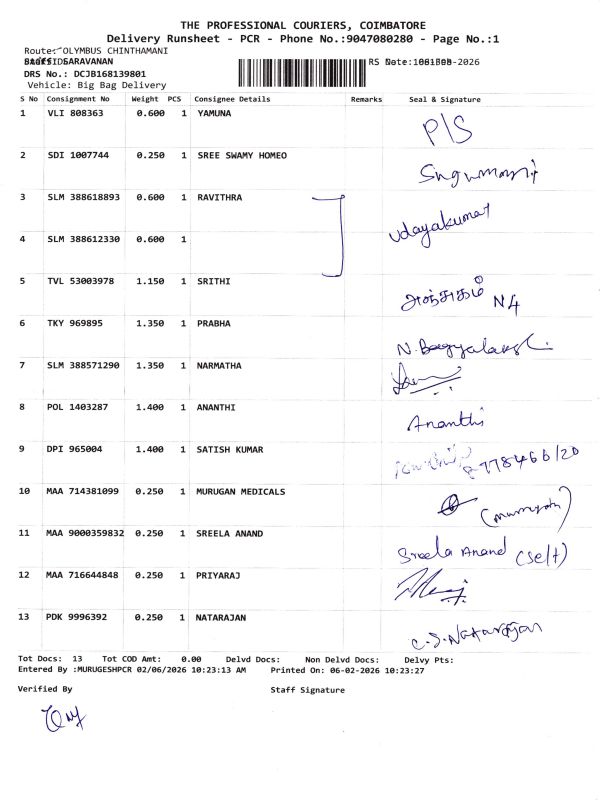 THE PROFESSIONAL COURIERS, COIMBATORE
Delivery Runsheet - PCR - Phone No.:9047080280 - Page No.:1
Route: OLYMBUS CHINTHAMANI
SARAVANAN
DRS No.: DCJB168139801
Vehicle: Big Bag Delivery
S No Consignment No Weight PCS Consignee Details Remarks Seal & Signature
1 VLI 808363 0.600 1 YAMUNA P/S
2 SDI 1007744 0.250 1 SREE SWAMY HOMEO
3 SLM 388618893 0.600 1 RAVITHRA Udayakumar
4 SLM 388612330 0.600 1
5 TVL 53003978 1.150 1 SRITHI N4
6 TKY 969895 1.350 1 PRABHA
7 SLM 388571290 1.350 1 NARMATHA
8 POL 1403287 1.400 1 ANANTHI Ananthi
9 DPI 965004 1.400 1 SATISH KUMAR
10 MAA 714381099 0.250 1 MURUGAN MEDICALS
11 MAA 9000359832 0.250 1 SREELA ANAND Sreela Anand (Self)
12 MAA 716644848 0.250 1 PRIYARAJ
13 PDK 9996392 0.250 1 NATARAJAN C.S.Natarajan
Tot Docs: 13 Tot COD Amt: 0.00 Delvd Docs: Non Delvd Docs: Delvy Pts:
Entered By :MURUGESHPCR 02/06/2026 10:23:13 AM Printed On: 06-02-2026 10:23:27
Verified By Staff Signature